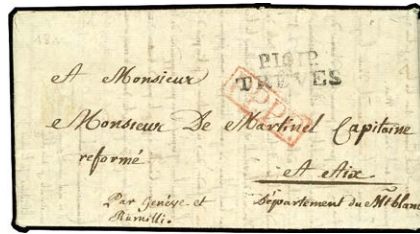 P101P
TREVES
PP
A Monsieur
Monsieur De Martinel Capitaine
reformé
A Aix
Par Genêve et
Rumilli.
Département du Mt blanc